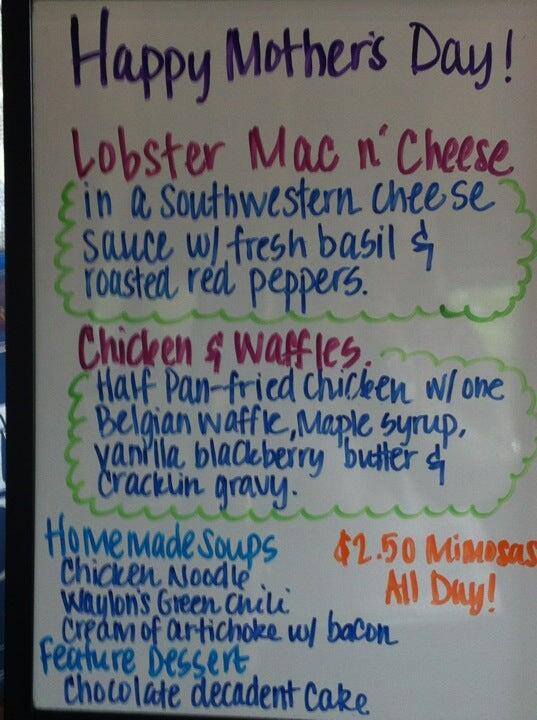 Happy Mother's Day!
Lobster Mac n' Cheese
in a Southwestern cheese
sauce w/ fresh basil &
roasted red peppers.
Chicken & Waffles.
Half Pan-fried Chicken w/ one
Belgian Waffle, Maple syrup,
vanilla blackberry butter &
Cracklin gravy.
Homemade Soups
Chicken Noodle
Waylon's Green Chili
Cream of artichoke w/ bacon
Feature Dessert
Chocolate decadent cake
$2.50 Mimosas
All Day!